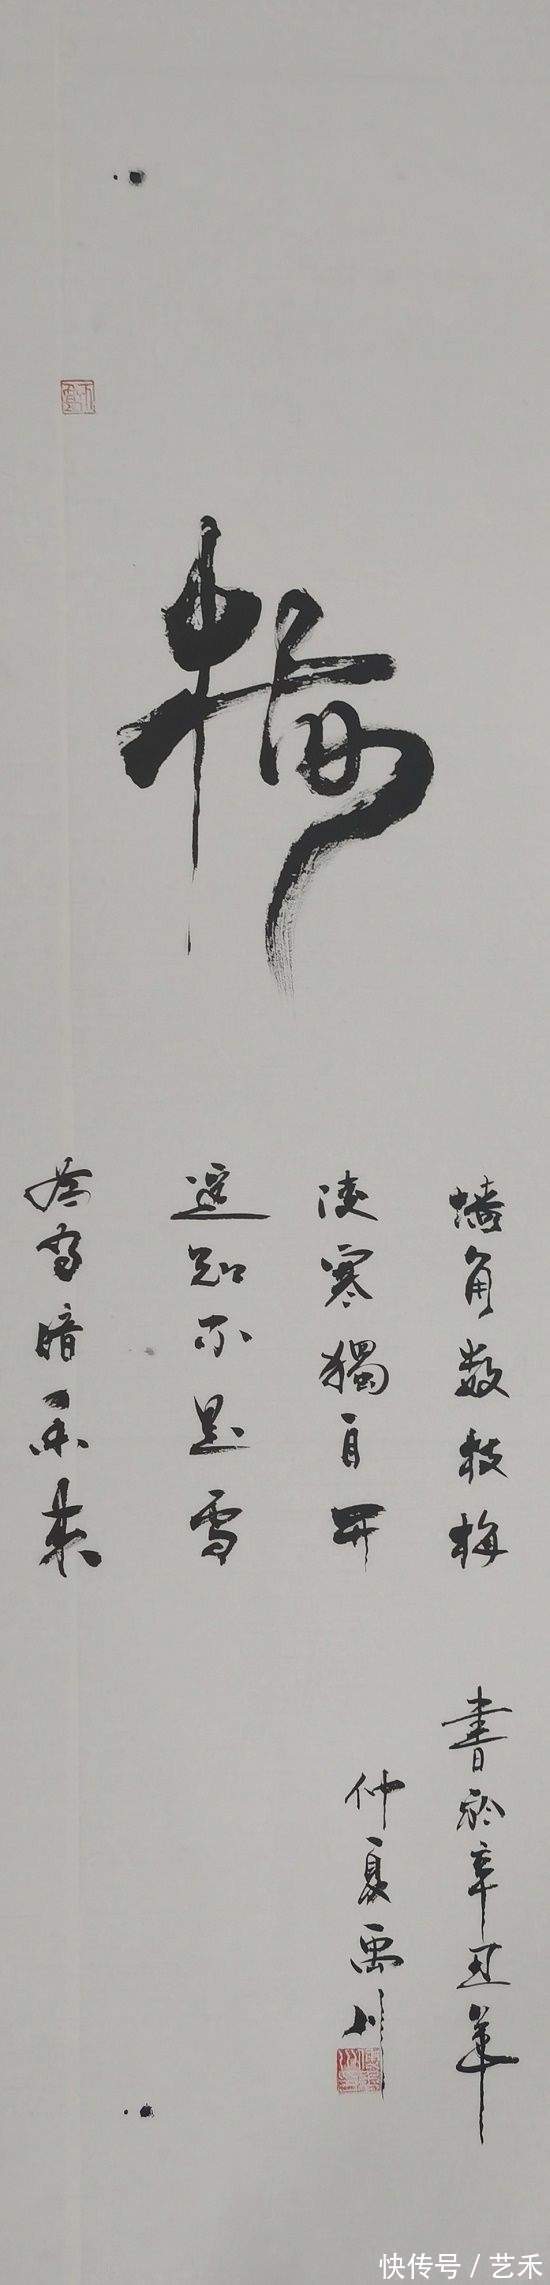 梅
墙角数枝梅
凌寒獨自開
遥知不是雪
為有暗香来
書於辛丑年
仲夏禹川
快传号 / 艺禾